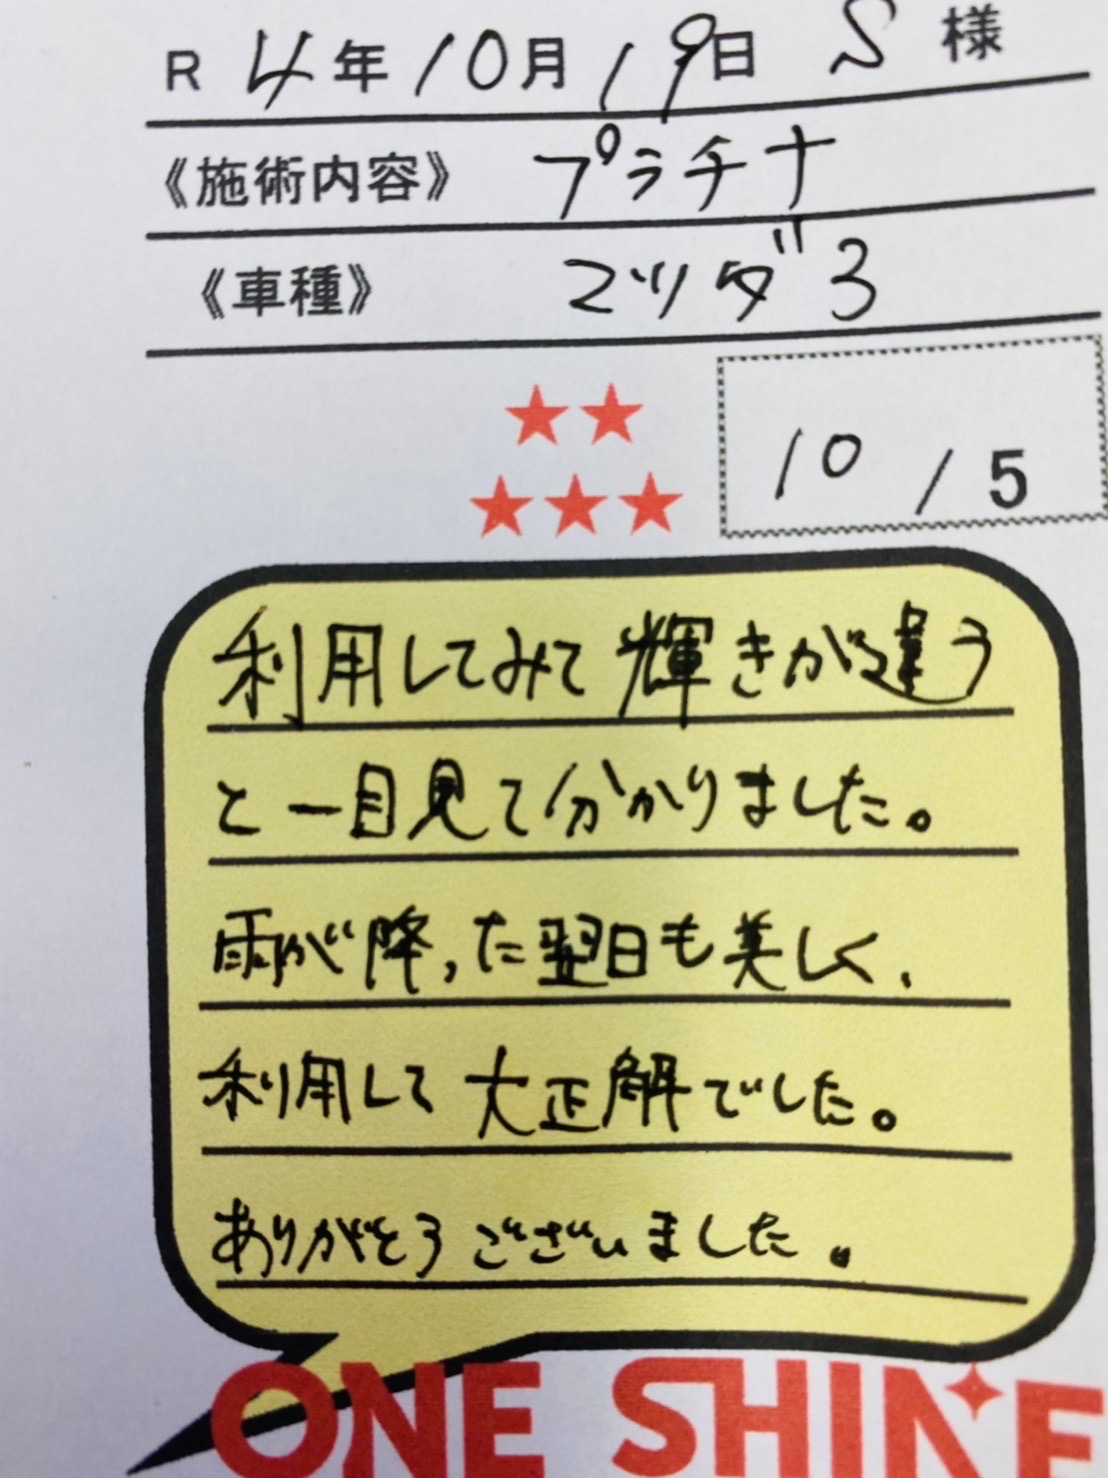 R 4年10月19日 S様
《施術内容》 プラチナ
《車種》 マツダ3
10/5
利用してみて輝きが違う
と一目見て分かりました。
雨が降った翌日も美しく、
利用して大正解でした。
ありがとうございました。
ONE SHINE